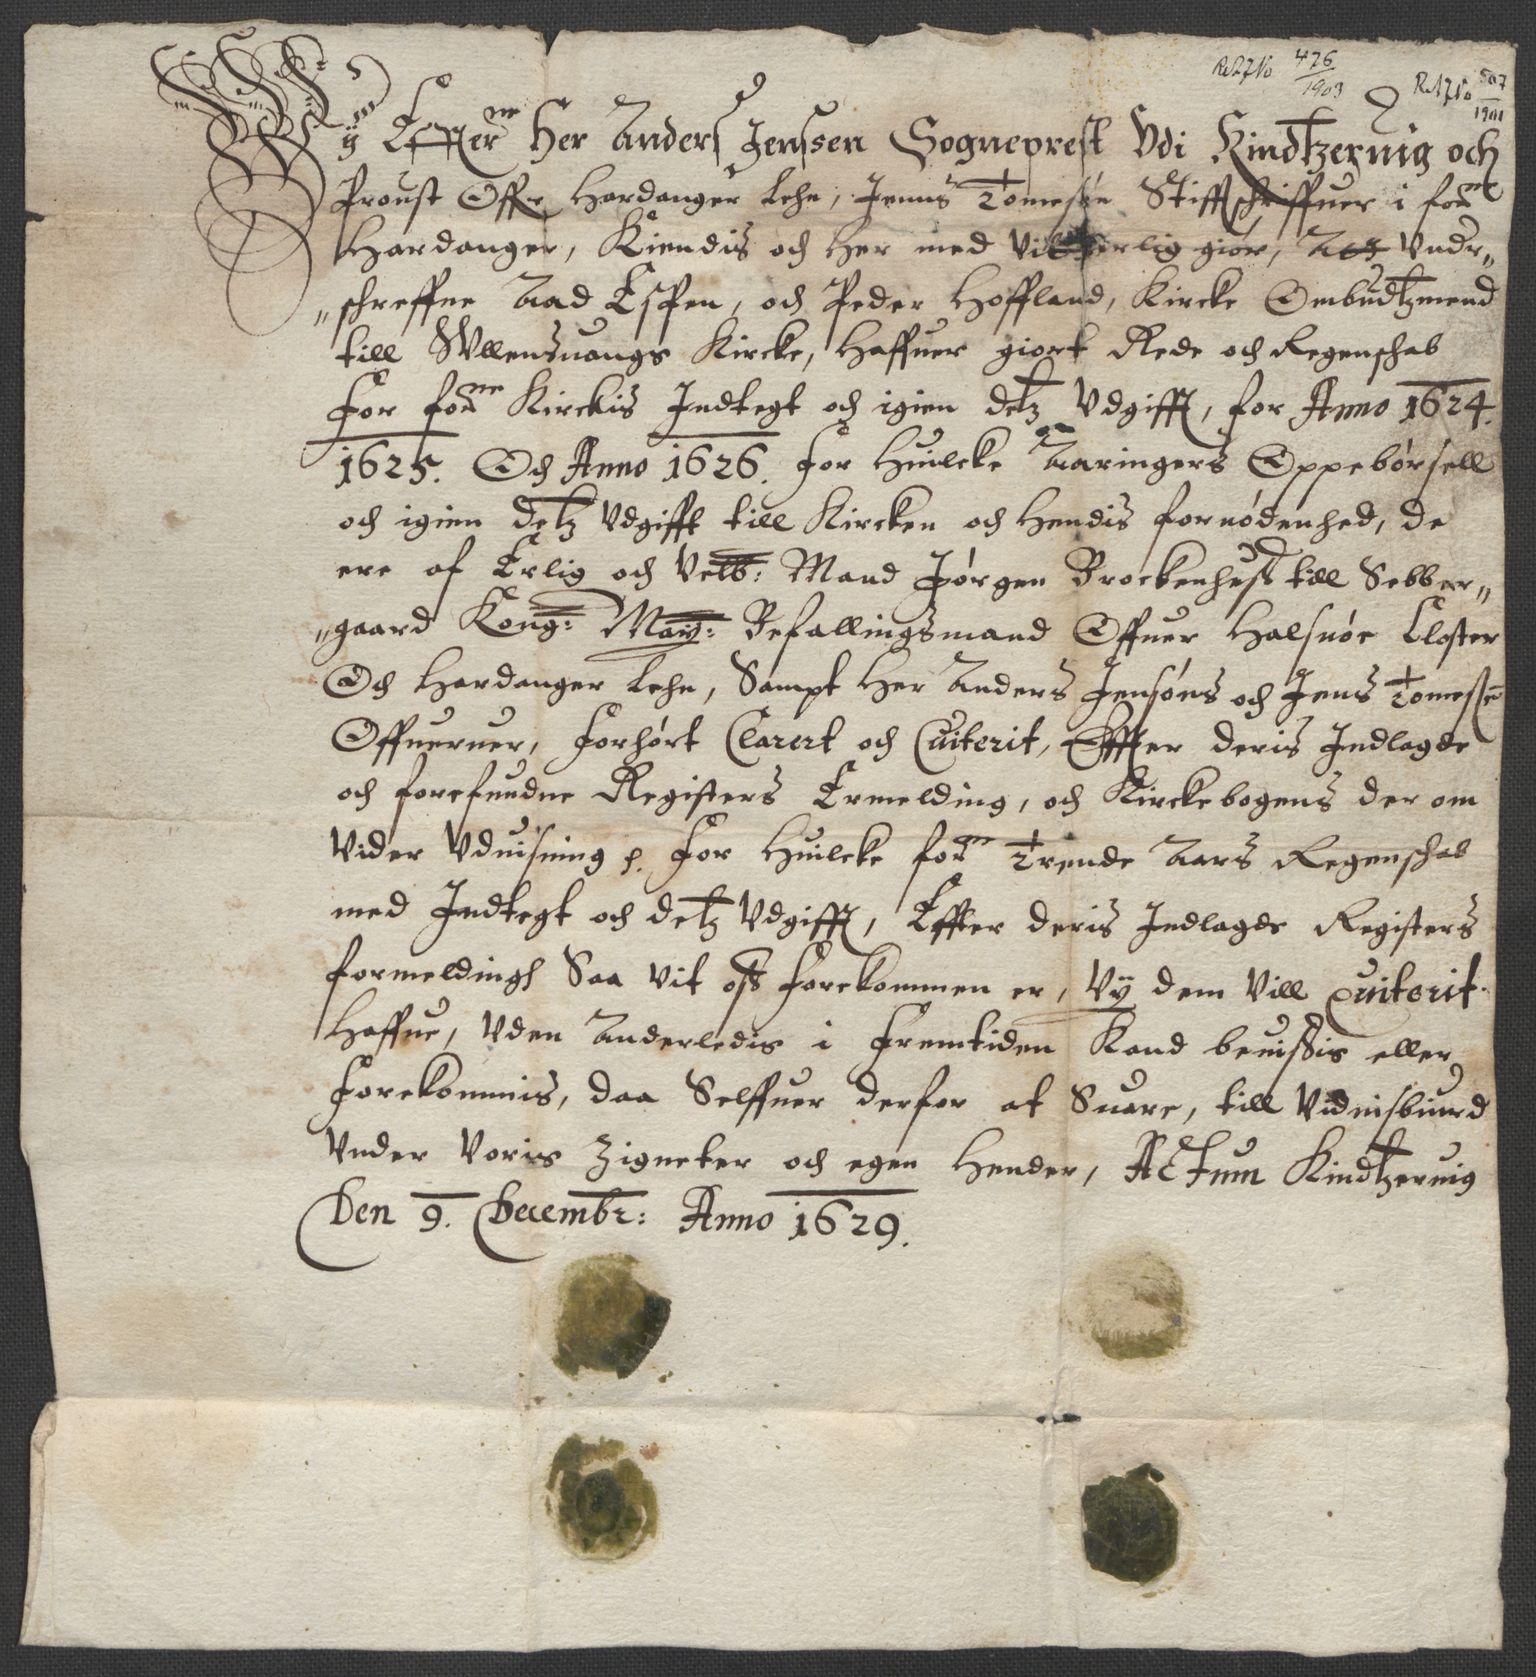 R.A.J.No 476/1903
R.A.J.No 507/1901
Wy Effterne Her Anders Jenssen Sogneprest Vdi Kindtzeruig och
Proust Offr Hardanger Lehn, Jenns Tomesßen Stifftschriffuer i forne
Hardanger, Kiendis och her med vitterlig giør, Att Vndr„
„schreffne Aad Espen, och Peder Hoffland, Kircke Ombudtzmend
till Wllensuangs Kircke, Haffuer giort Rede och Regenschab
For forne Kirckis Indtegt och igien detz Vdgifft, for Anno 1624.
1625. Och Anno 1626. For Huilcke Aaringers Oppebørsell
och igien detz Vdgifft till Kircken och Hendis fornødenhed, de
ere af Erlig och Velb: Mand Jørgen Brockenhuß till Sebber„
„gaard Kong: May: Befallingsmand Offuer Halsnøe Closter
Och Hardanger Lehn, Sampt Her Anders Jensøns och Jens Tomeßē
Offueruer, Forhørt Clarert och Cuiterit, Effter deris Indlagde
och forefundne Registers Ermelding, och Kirckebogens der om
Vider Vduisning p. For Huilcke forne Trende Aars Regenschab
med Indtegt och detz Vdgifft, Effter deris Indlagde Registers
formelding Saa vit oss Forekommen er, Vy dem Vill quiterit
Haffue, Vden Anderledis i Fremtiden Kand beuißis eller
Forekommis, daa Selffuer derfor at Suare, till Vidnisbiurd
Vnder Voris Zigneter och egen Hender, Actum Kindtzeruig
Den 9. Decembr: Anno 1629.